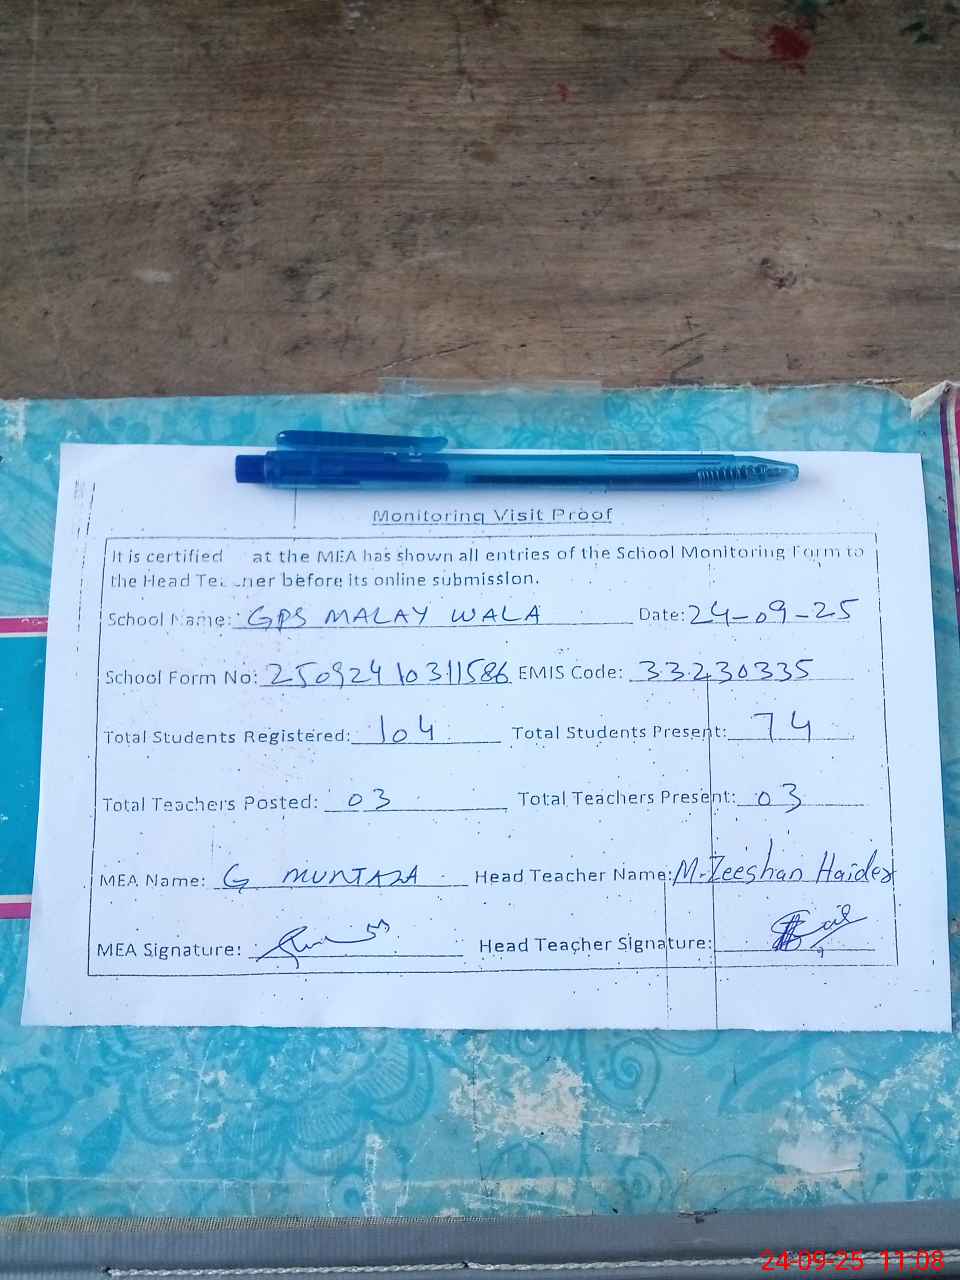 Monitoring Visit Proof
It is certified at the MEA has shown all entries of the School Monitoring Form to
the Head Teacher before its online submission.
School Name: GPS MALAY WALA Date: 24-09-25
School Form No: 25092410311586 EMIS Code: 33230335
Total Students Registered: 104 Total Students Present: 74
Total Teachers Posted: 03 Total Teachers Present: 03
MEA Name: G MURTAZA Head Teacher Name: M. Zeeshan Haider
MEA Signature: Head Teacher Signature:
24-09-25 11:08